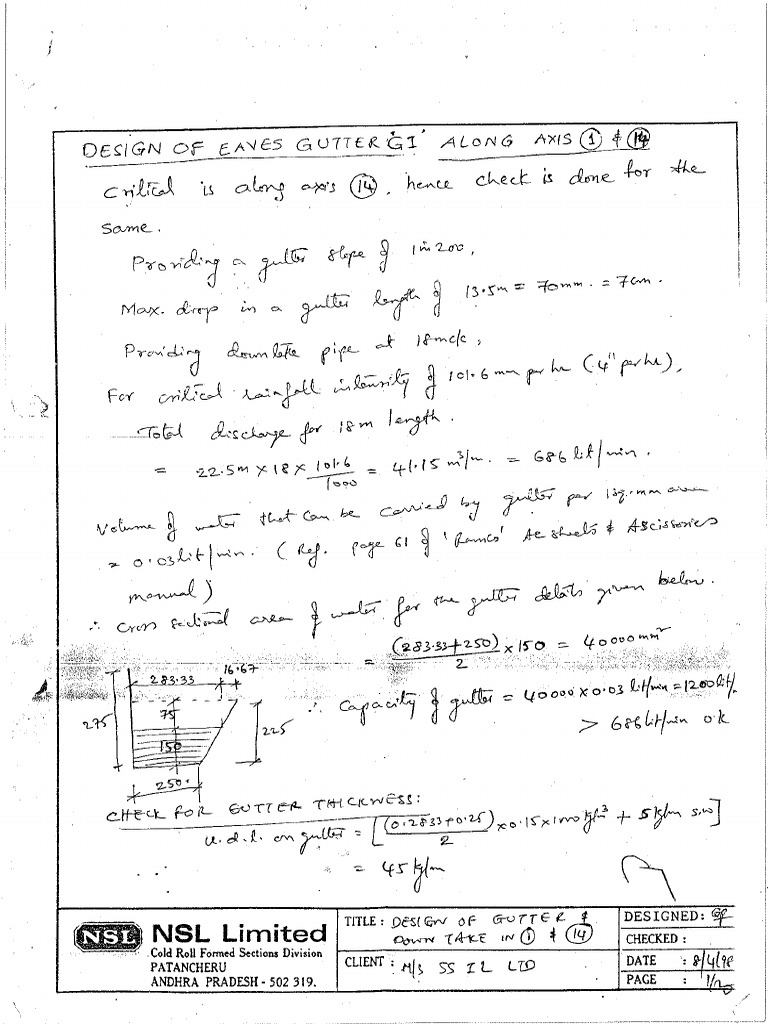 DESIGN OF EAVES GUTTER 'G1' ALONG AXIS ① & ⑭
Critical is along axis ⑭, hence check is done for the
same.
Providing a gutter slope of 1 in 200,
Max. drop in a gutter length of 13.5m = 70mm. = 7cm.
Providing downtake pipe at 18m c/c,
For critical rainfall intensity of 101.6 mm per hr (4" per hr),
Total discharge for 18m length.
= 22.5m × 18 × 101.6/1000 = 41.15 m³/hr. = 686 lit/min.
Volume of water that can be carried by gutter per 1sq.mm area
= 0.03 lit/min. (Ref. page 61 of 'Ramco' Ac sheets & Ascissories
manual)
∴ Cross sectional area of water for the gutter details given below.
= (283.33+250)/2 × 150 = 40000 mm²
283.33
16.67
275
75
150
225
250
∴ Capacity of gutter = 40000 × 0.03 lit/min = 1200 lit/.
> 686 lit/min o.k
CHECK FOR GUTTER THICKNESS:
u.d.l. on gutter = [(0.2833+0.25)/2 × 0.15 × 1000 kg/m³ + 5 kg/m s.w]
= 45 kg/m
NSL
NSL Limited
Cold Roll Formed Sections Division
PATANCHERU
ANDHRA PRADESH - 502 319.
TITLE : DESIGN OF GUTTER &
DOWN TAKE IN ① & ⑭
CLIENT : M/S SS I L LTD
DESIGNED:
CHECKED :
DATE : 8/4/98
PAGE : 1/2